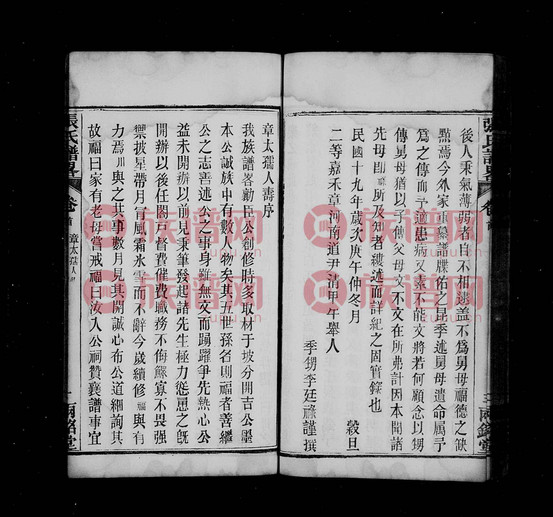 後人秉氣薄弱者自不祖述蓋不為舅母福德之缺
點焉今外家重纂譜牒佑之昆季述舅母遺命屬予
為之傳而予適患病又素不能文將若何顧念以甥
傳舅母猶以子傳父母文不文在所弗計因本聞諸
先母即福所及知者縷述而詳紀之固實錄也
民國十九年歲次庚午仲冬月 穀旦
二等嘉禾章河南道尹清甲午舉人
季甥李廷祿謹撰
章太孺人壽序
我族譜咎勤上公創修時多取材于坡分開吉公墨
本公誠族中有數人物矣其五世孫名則福者善繼
公之志善述公之事身雖無文而踴躍爭先熱心公
益未開辦以前見秉筆發起諸先生極力慫恿之既
開辦以後任閤戶督費催費職務不侮鰥寡不畏強
禦披星帶月冒風霜氷雪而不辭今歲續修福與有
力焉川與之共事數月見其開誠心布公道細詢其
故福曰家有老母嘗戒福曰汝入公祠贊襄譜事宜
張氏譜
卷首
章太孺人
兩銘堂
族譜網